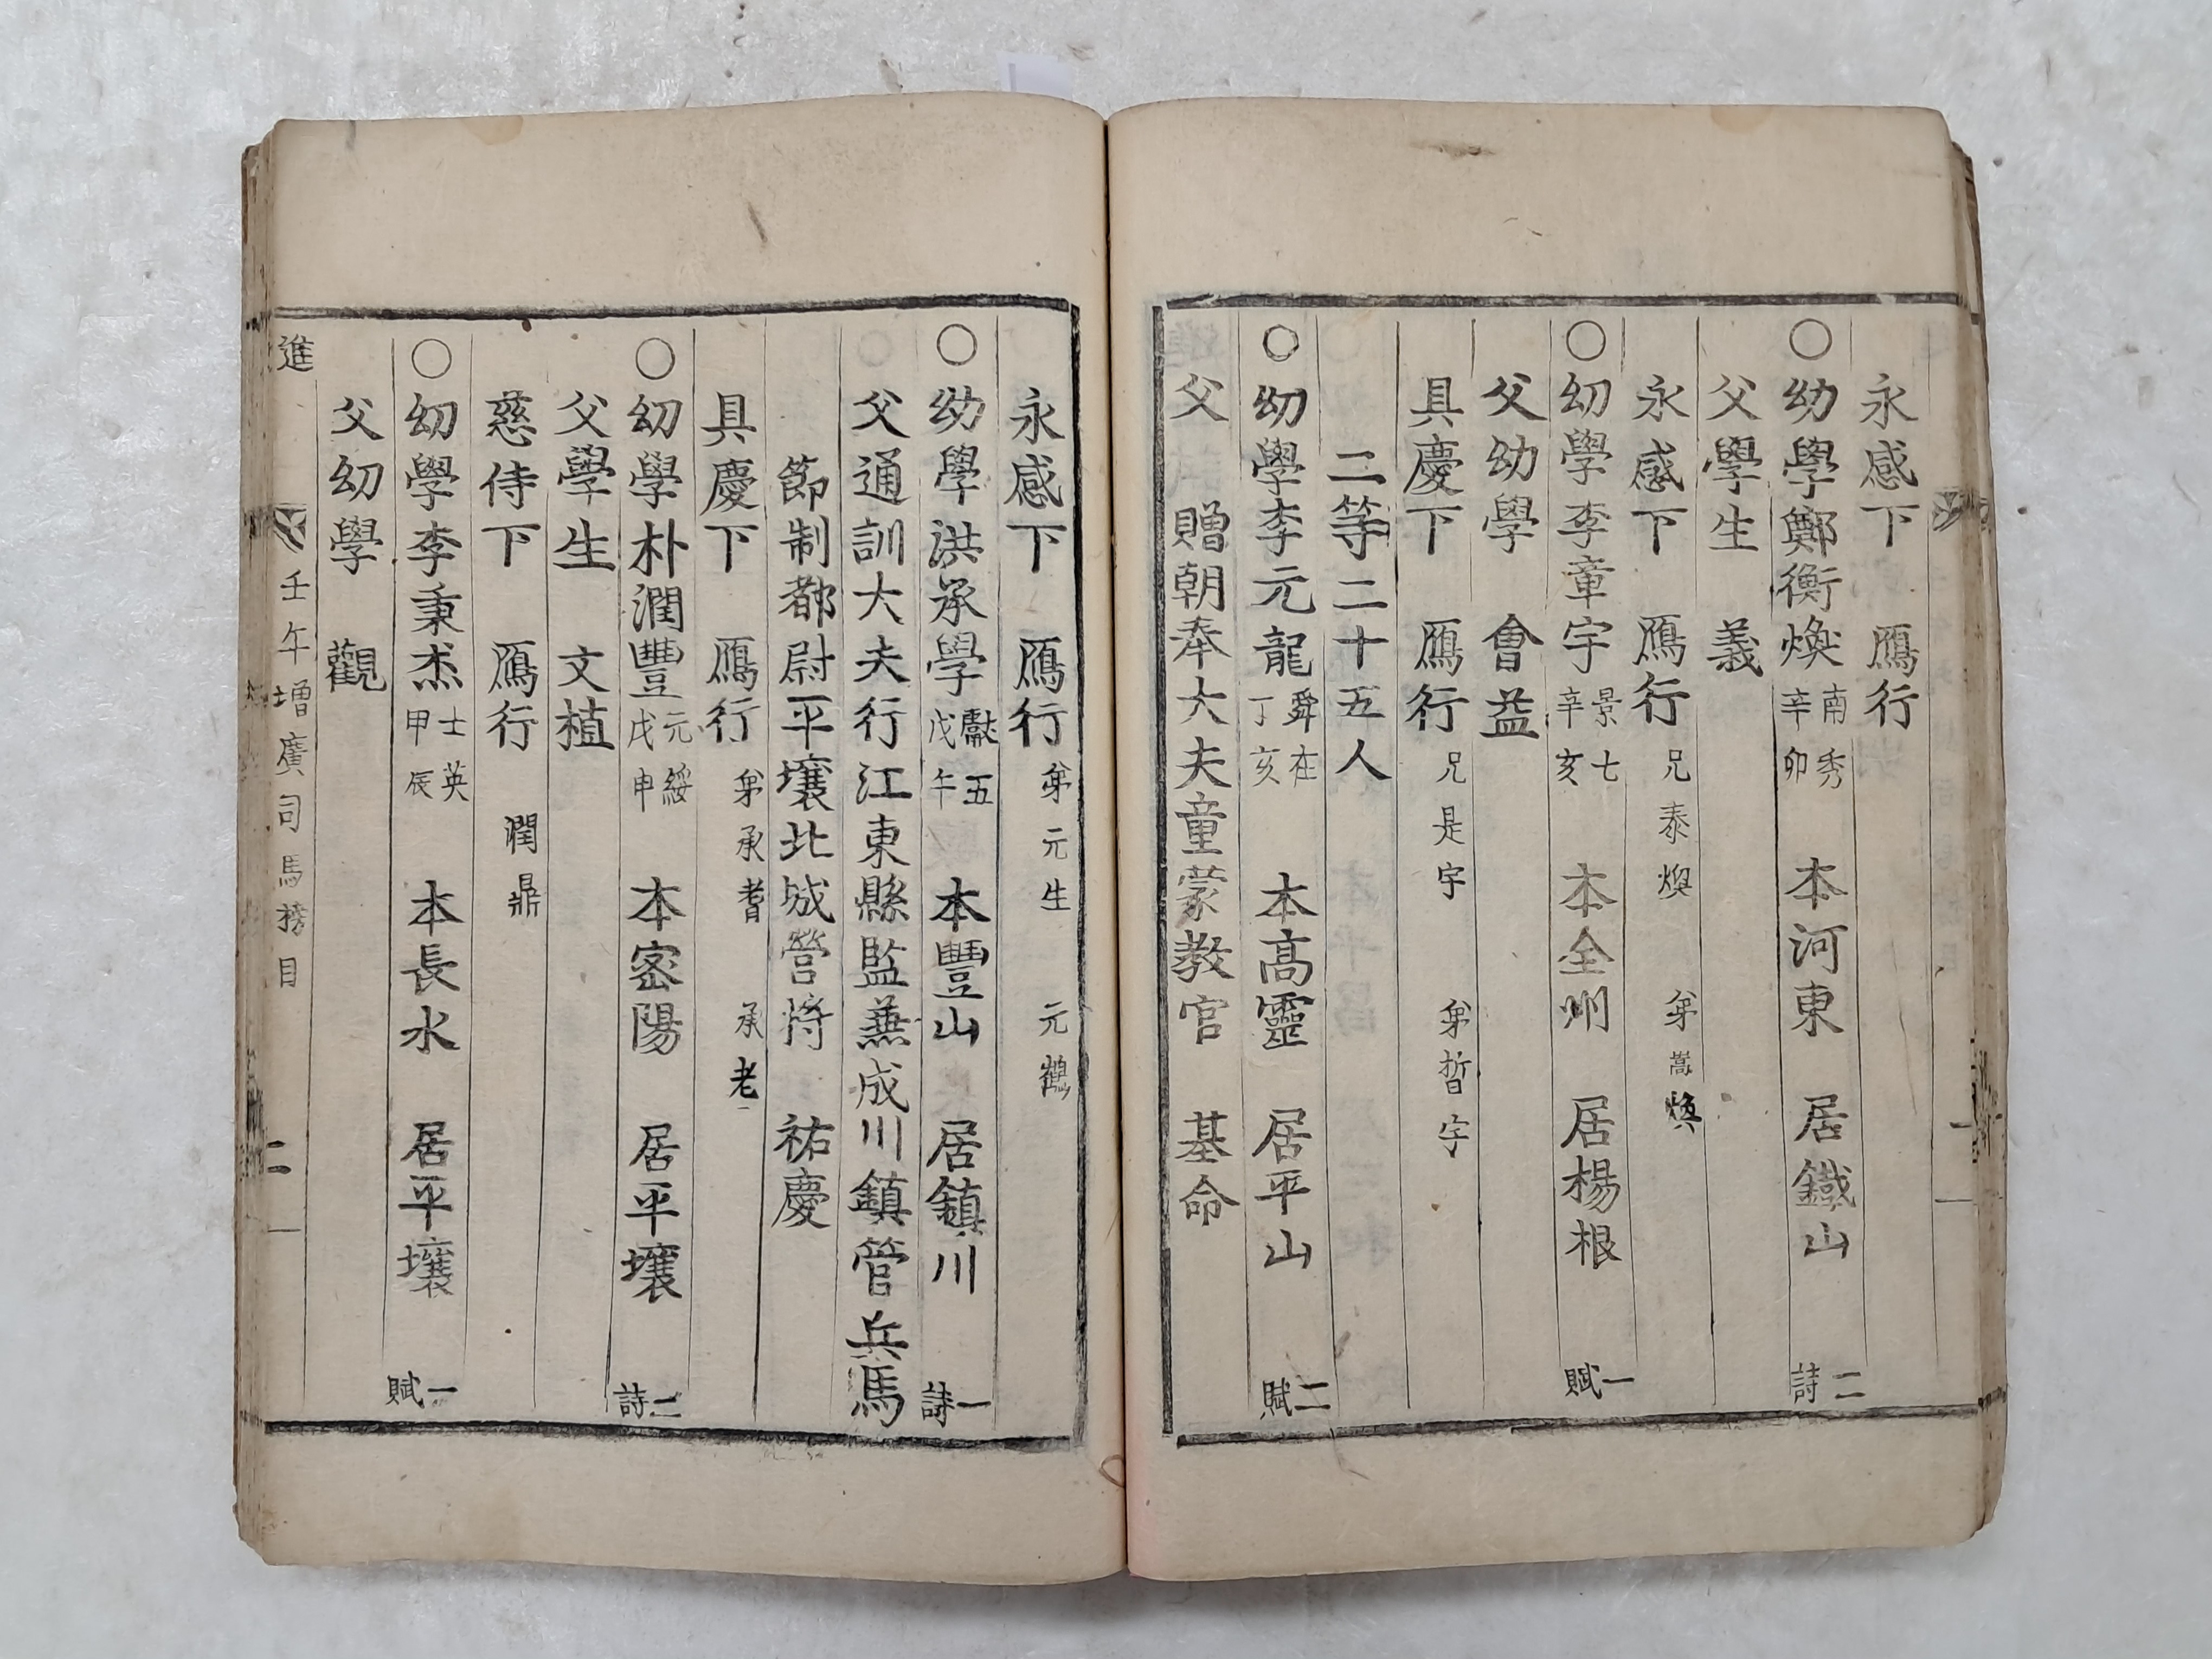 永感下 鴈行
○幼學鄭衡煥 南秀 辛卯 本河東 居鐵山 二詩
父學生 義
永感下 鴈行 兄泰煥 弟嵩煥
○幼學李章宇 景七 辛亥 本全州 居楊根 一賦
父幼學 會益
具慶下 鴈行 兄是宇 弟晢宇
二等二十五人
○幼學李元龍 舜在 丁亥 本高靈 居平山 二賦
父 贈朝奉大夫童蒙敎官 基命
永感下 鴈行 弟元生 元鶴
○幼學洪承學 獻五 戊午 本豐山 居鎭川 一詩
父通訓大夫行江東縣監兼成川鎭管兵馬
節制都尉平壤北城營將 祐慶
具慶下 鴈行 弟承耆 承老
○幼學朴潤豐 元綏 戊申 本密陽 居平壤 二詩
父學生 文植
慈侍下 鴈行 潤鼎
○幼學李秉杰 士英 甲辰 本長水 居平壤 一賦
父幼學 觀
進 壬午增廣司馬榜目 二